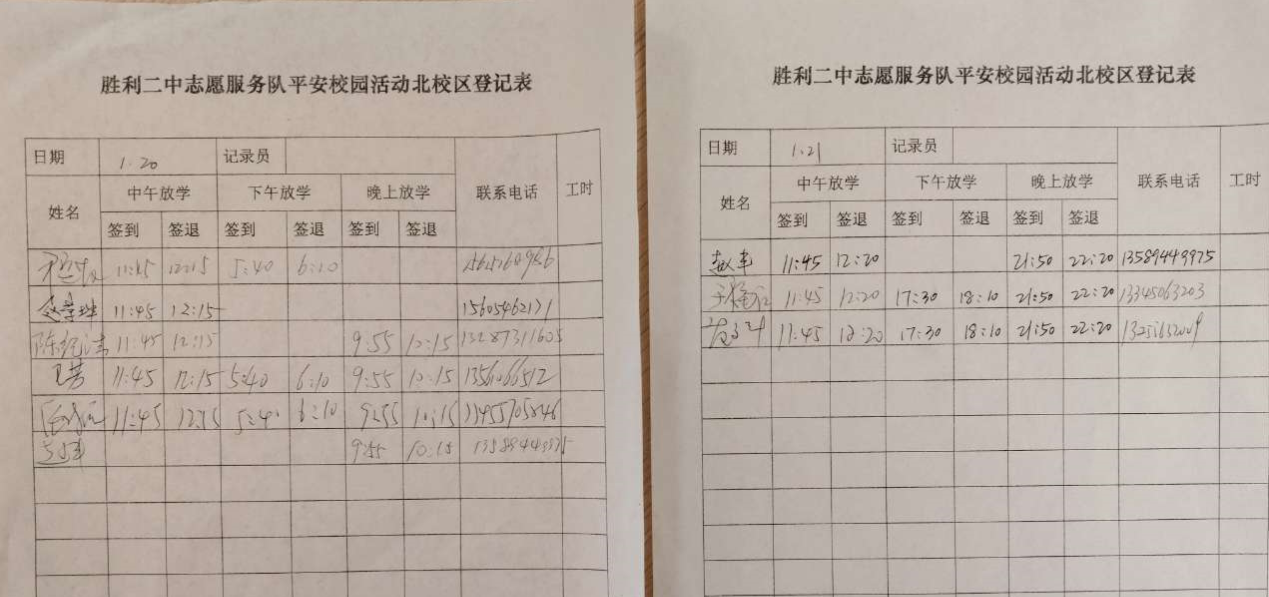 胜利二中志愿服务队平安校园活动北校区登记表
日期 1.20 记录员
姓名 中午放学 下午放学 晚上放学 联系电话 工时
签到 签退 签到 签退 签到 签退
11:45 12:15 5:40 6:10
11:45 12:15 15605462171
11:45 12:15 9:55 10:15 13287311605
王芳 11:45 12:15 5:40 6:10 9:55 10:15
11:45 12:15 5:40 6:10 9:55 10:15
9:55 10:15
胜利二中志愿服务队平安校园活动北校区登记表
日期 1.21 记录员
姓名 中午放学 下午放学 晚上放学 联系电话 工时
签到 签退 签到 签退 签到 签退
赵军 11:45 12:20 21:50 22:20 13589449975
11:45 12:20 17:30 18:10 21:50 22:20 13345063203
11:45 12:20 17:30 18:10 21:50 22:20